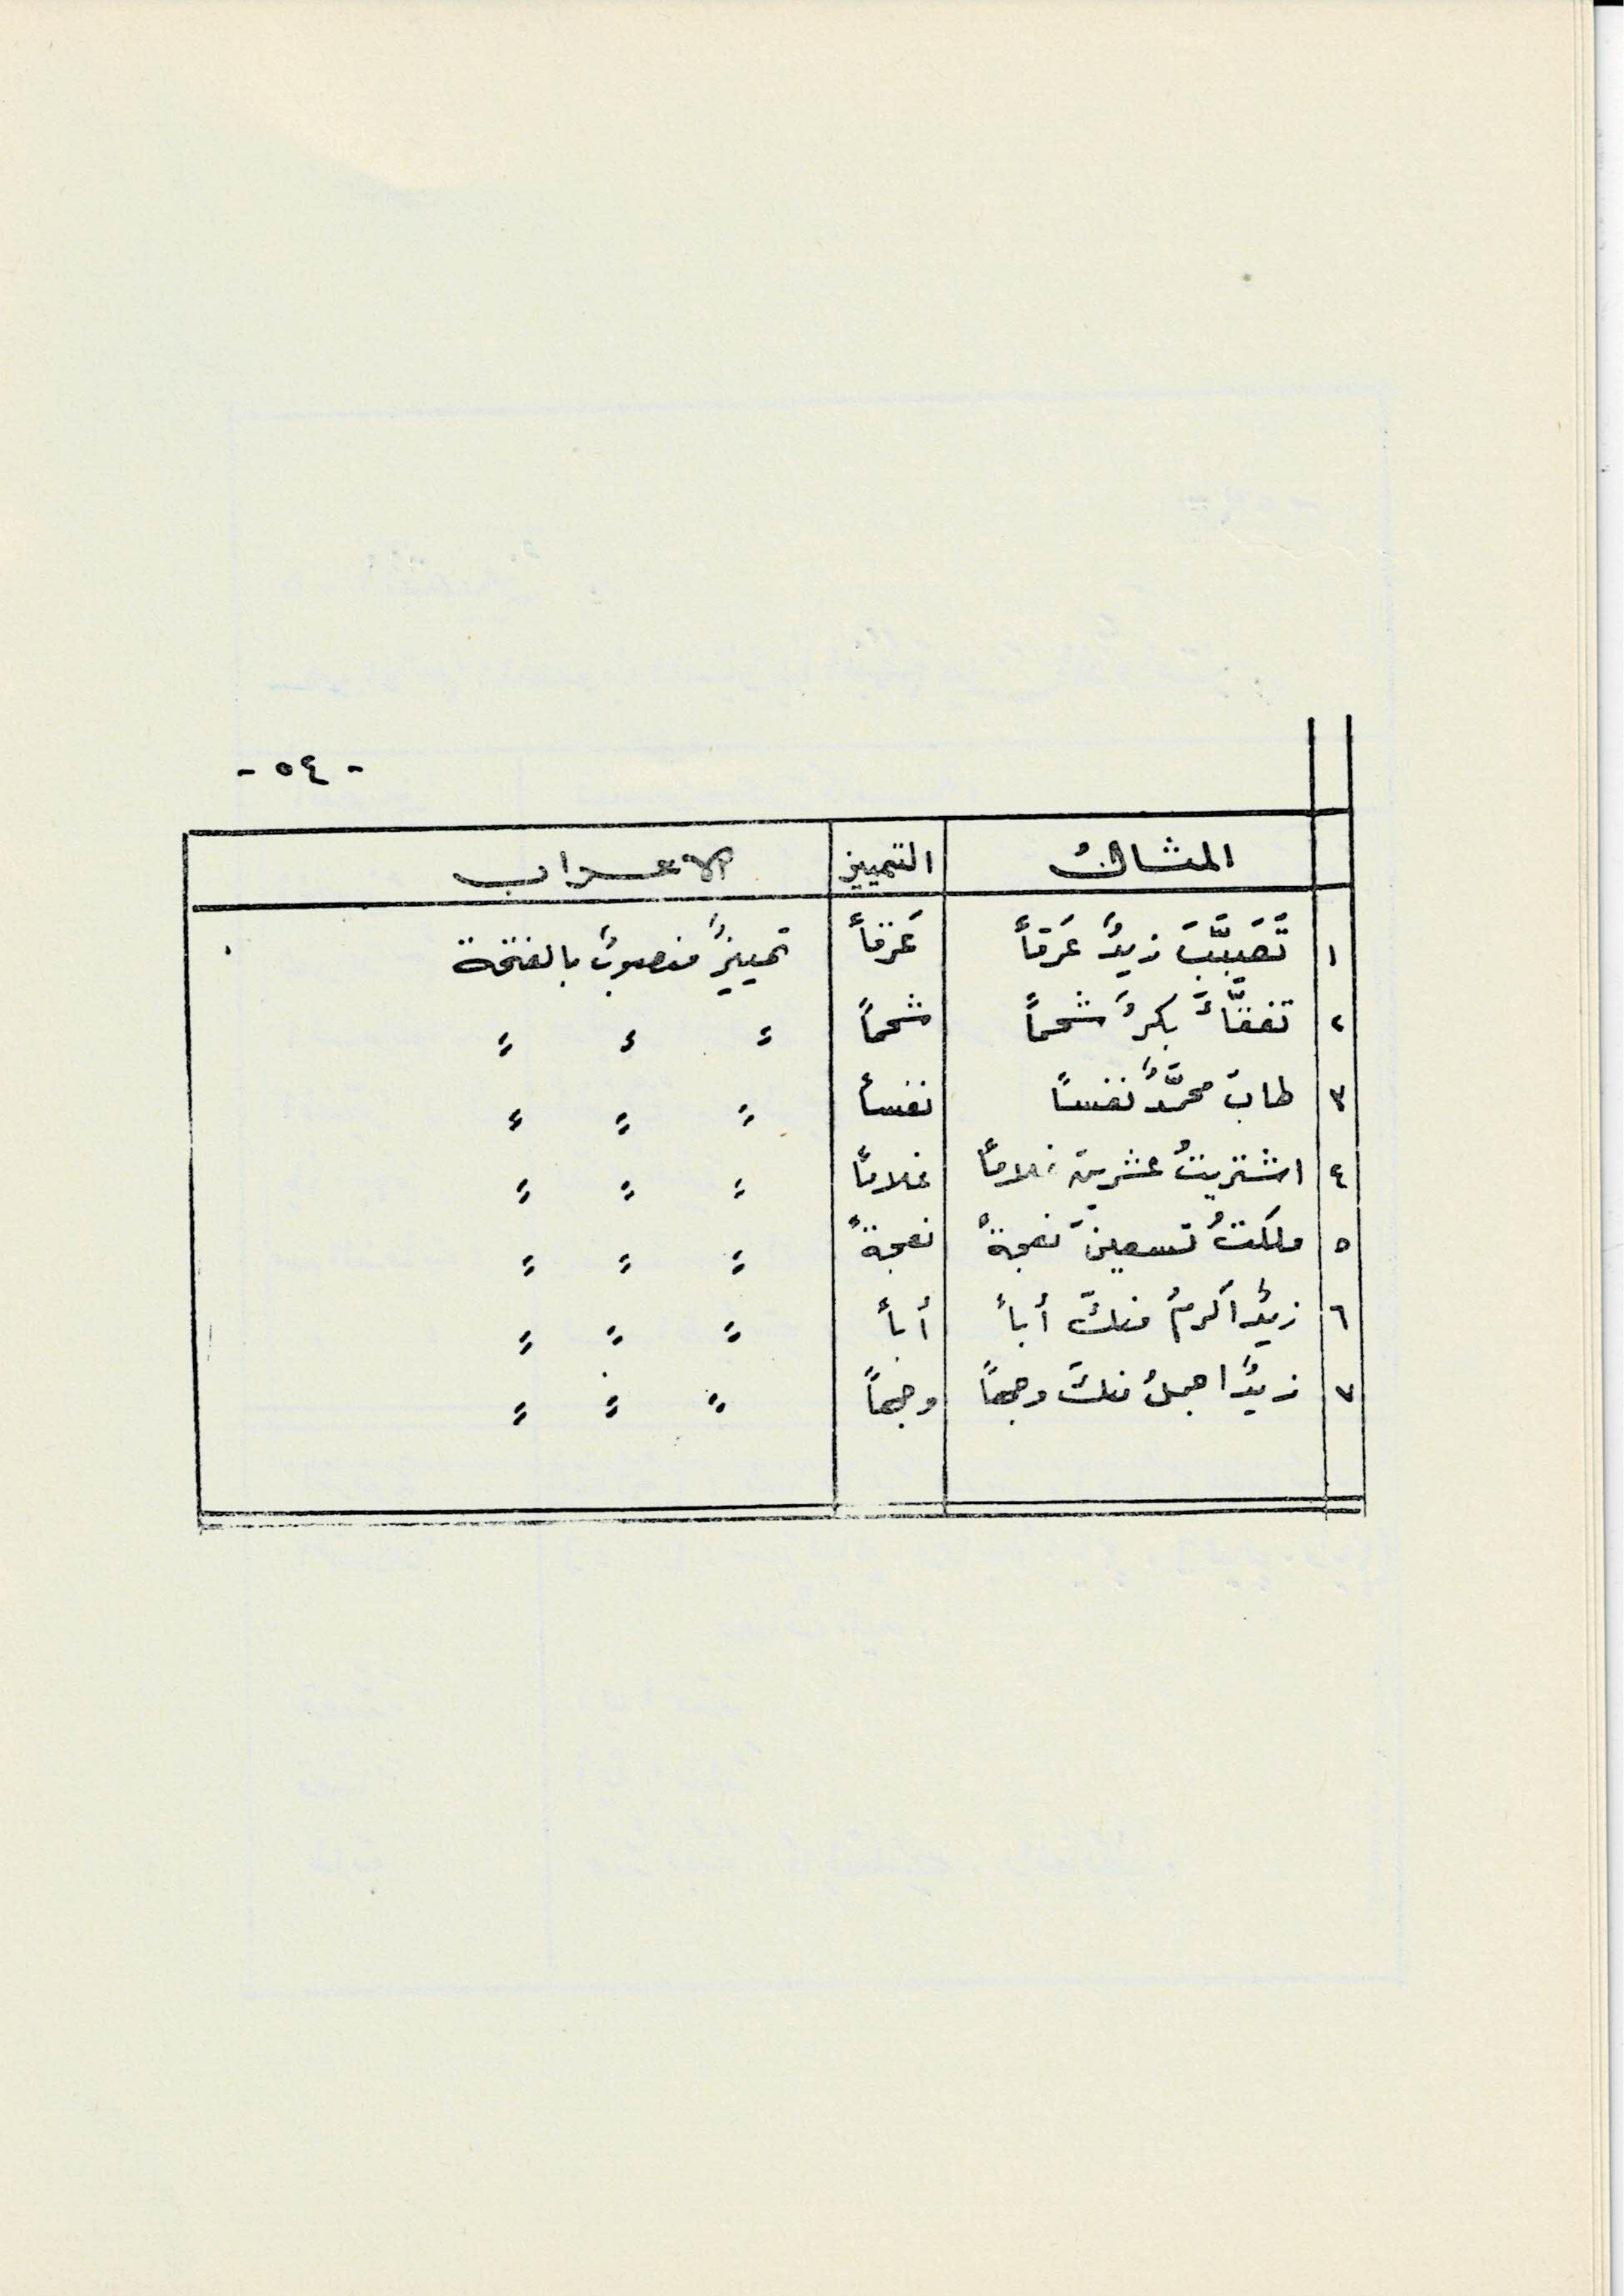 - ٥٤ -
المثالُ التمييز الاعراب
١ تَصَبَّبَ زيدٌ عَرَقاً عَرَقاً تمييزٌ منصوبٌ بالفتحة
٢ تفقَّأَ بكرٌ شحماً شحماً " " "
٣ طابَ محمَّدٌ نفساً نفساً " " "
٤ اشتريتُ عشرينَ غلاماً غلاماً " " "
٥ ملكتُ تسعينَ نعجةً نعجةً " " "
٦ زيدٌ اكرمُ منكَ أباً أباً " " "
٧ زيدٌ اجملُ منكَ وجهاً وجهاً " " "